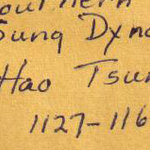 outhern
Sung Dyna
Hao Tsun
1127-116